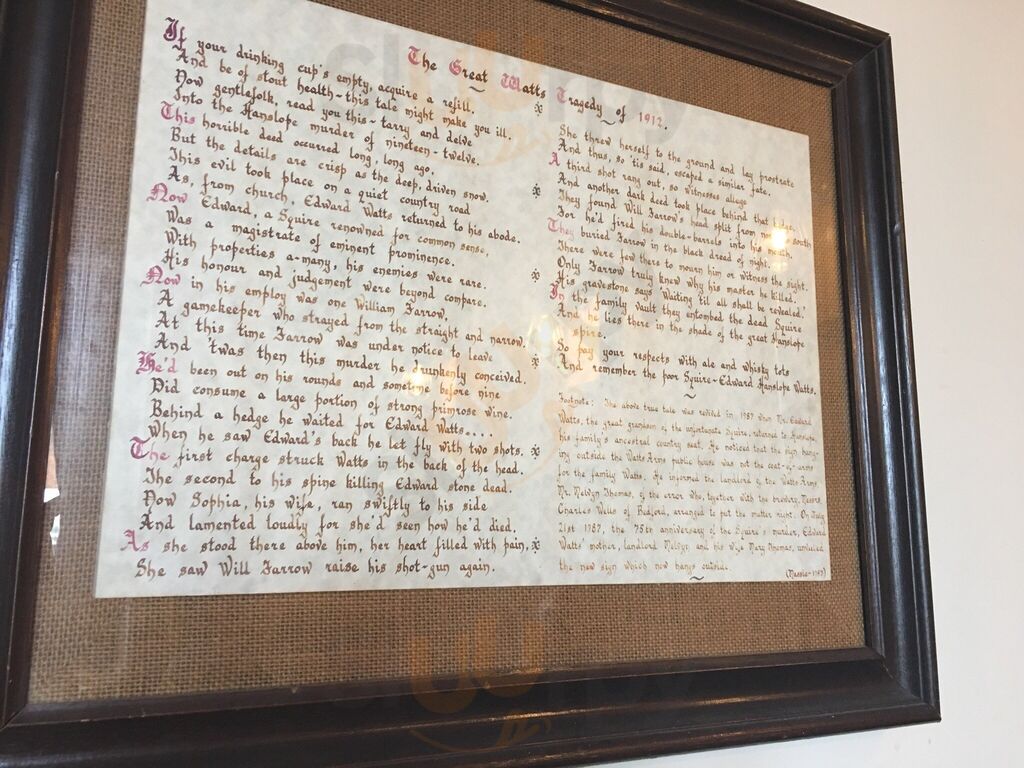 The Great Watts Tragedy of 1912.
If your drinking cup's empty, acquire a refill.
And be of stout health-this tale might make you ill.
Now gentlefolk, read you this-tarry and delve
Into the Hanslope murder of nineteen-twelve.
This horrible deed occurred long, long ago,
But the details are crisp as the deep, driven snow.
This evil took place on a quiet country road
As, from church, Edward Watts returned to his abode.
Now Edward, a Squire renowned for common sense,
Was a magistrate of eminent prominence.
With properties a-many, his enemies were rare.
His honour and judgement were beyond compare.
Now in his employ was one William Farrow,
A gamekeeper who strayed from the straight and narrow.
At this time Farrow was under notice to leave
And 'twas then this murder he drunkenly conceived.
He'd been out on his rounds and sometime before nine
Did consume a large portion of strong primrose wine.
Behind a hedge he waited for Edward Watts....
When he saw Edward's back he let fly with two shots.
The first charge struck Watts in the back of the head.
The second to his spine killing Edward stone dead.
Now Sophia, his wife, ran swiftly to his side
And lamented loudly for she'd seen how he'd died.
As she stood there above him, her heart filled with pain,
She saw Will Farrow raise his shot-gun again.
She threw herself to the ground and lay prostrate
And thus, so 'tis said, escaped a similar fate.
A third shot rang out, so witnesses allege
And another dark deed took place behind that
They found Will Farrow's head split from south
For he'd fired his double-barrels into his mouth.
They buried Farrow in the black dread of night.
There were few there to mourn him or witness the sight.
Only Farrow truly knew why his master he killed.
His gravestone says 'Waiting til all shall be revealed.'
In the family vault they entombed the dead Squire
And he lies there in the shade of the great Hanslope
spire.
So pay your respects with ale and whisky tots
And remember the poor Squire-Edward Hanslope Watts.
Footnote: The above true tale was revived in 1987 when Mr. Edward
Watts, the great grandson of the unfortunate Squire, returned to Hanslope,
his family's ancestral country seat. He noticed that the sign hang-
ing outside the Watts Arms public house was not the coat-of-arms
for the family Watts. He informed the landlord of the Watts Arms,
Mr. Melvyn Thomas, of the error who, together with the brewery, Messrs.
Charles Wells of Bedford, arranged to put the matter right. On July
21st 1987, the 75th anniversary of the Squire's murder, Edward
Watts' mother, landlord Melvyn and his wife Mary Thomas, unveiled
the new sign which now hangs outside.